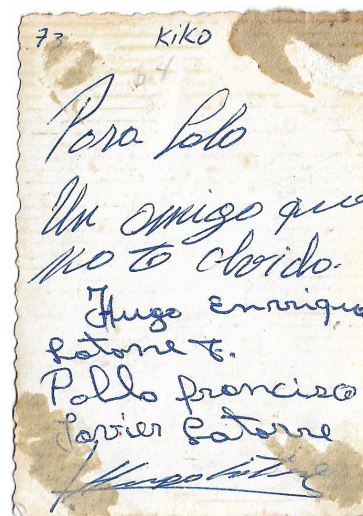 73 KIKO
64
Para Lolo
Un amigo que
no te olvida.
Hugo Enrrique
Latorre F.
Pollo francisco
Javier Latorre